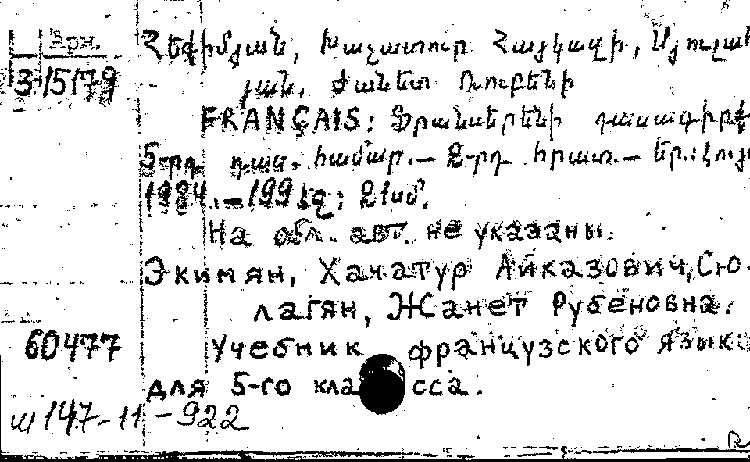 Յրև.
Հեքիմյան, Խաչատուր Հայկազի, Սյուլան
3-15179
յան, Ժանետ Ռուբենի
FRANÇAIS: Ֆրանսերենի դասագիրք
5-րդ դաս. համար.— 2-րդ հրատ.— Եր.: Լույս
1984.—199 էջ; 21սմ.
На обл. авт. не указаны.
Экимян, Хачатур Айказович, Сю-
лагян, Жанет Рубеновна.
60477 Учебник французского языка
для 5-го класса.
ш 147-11-922